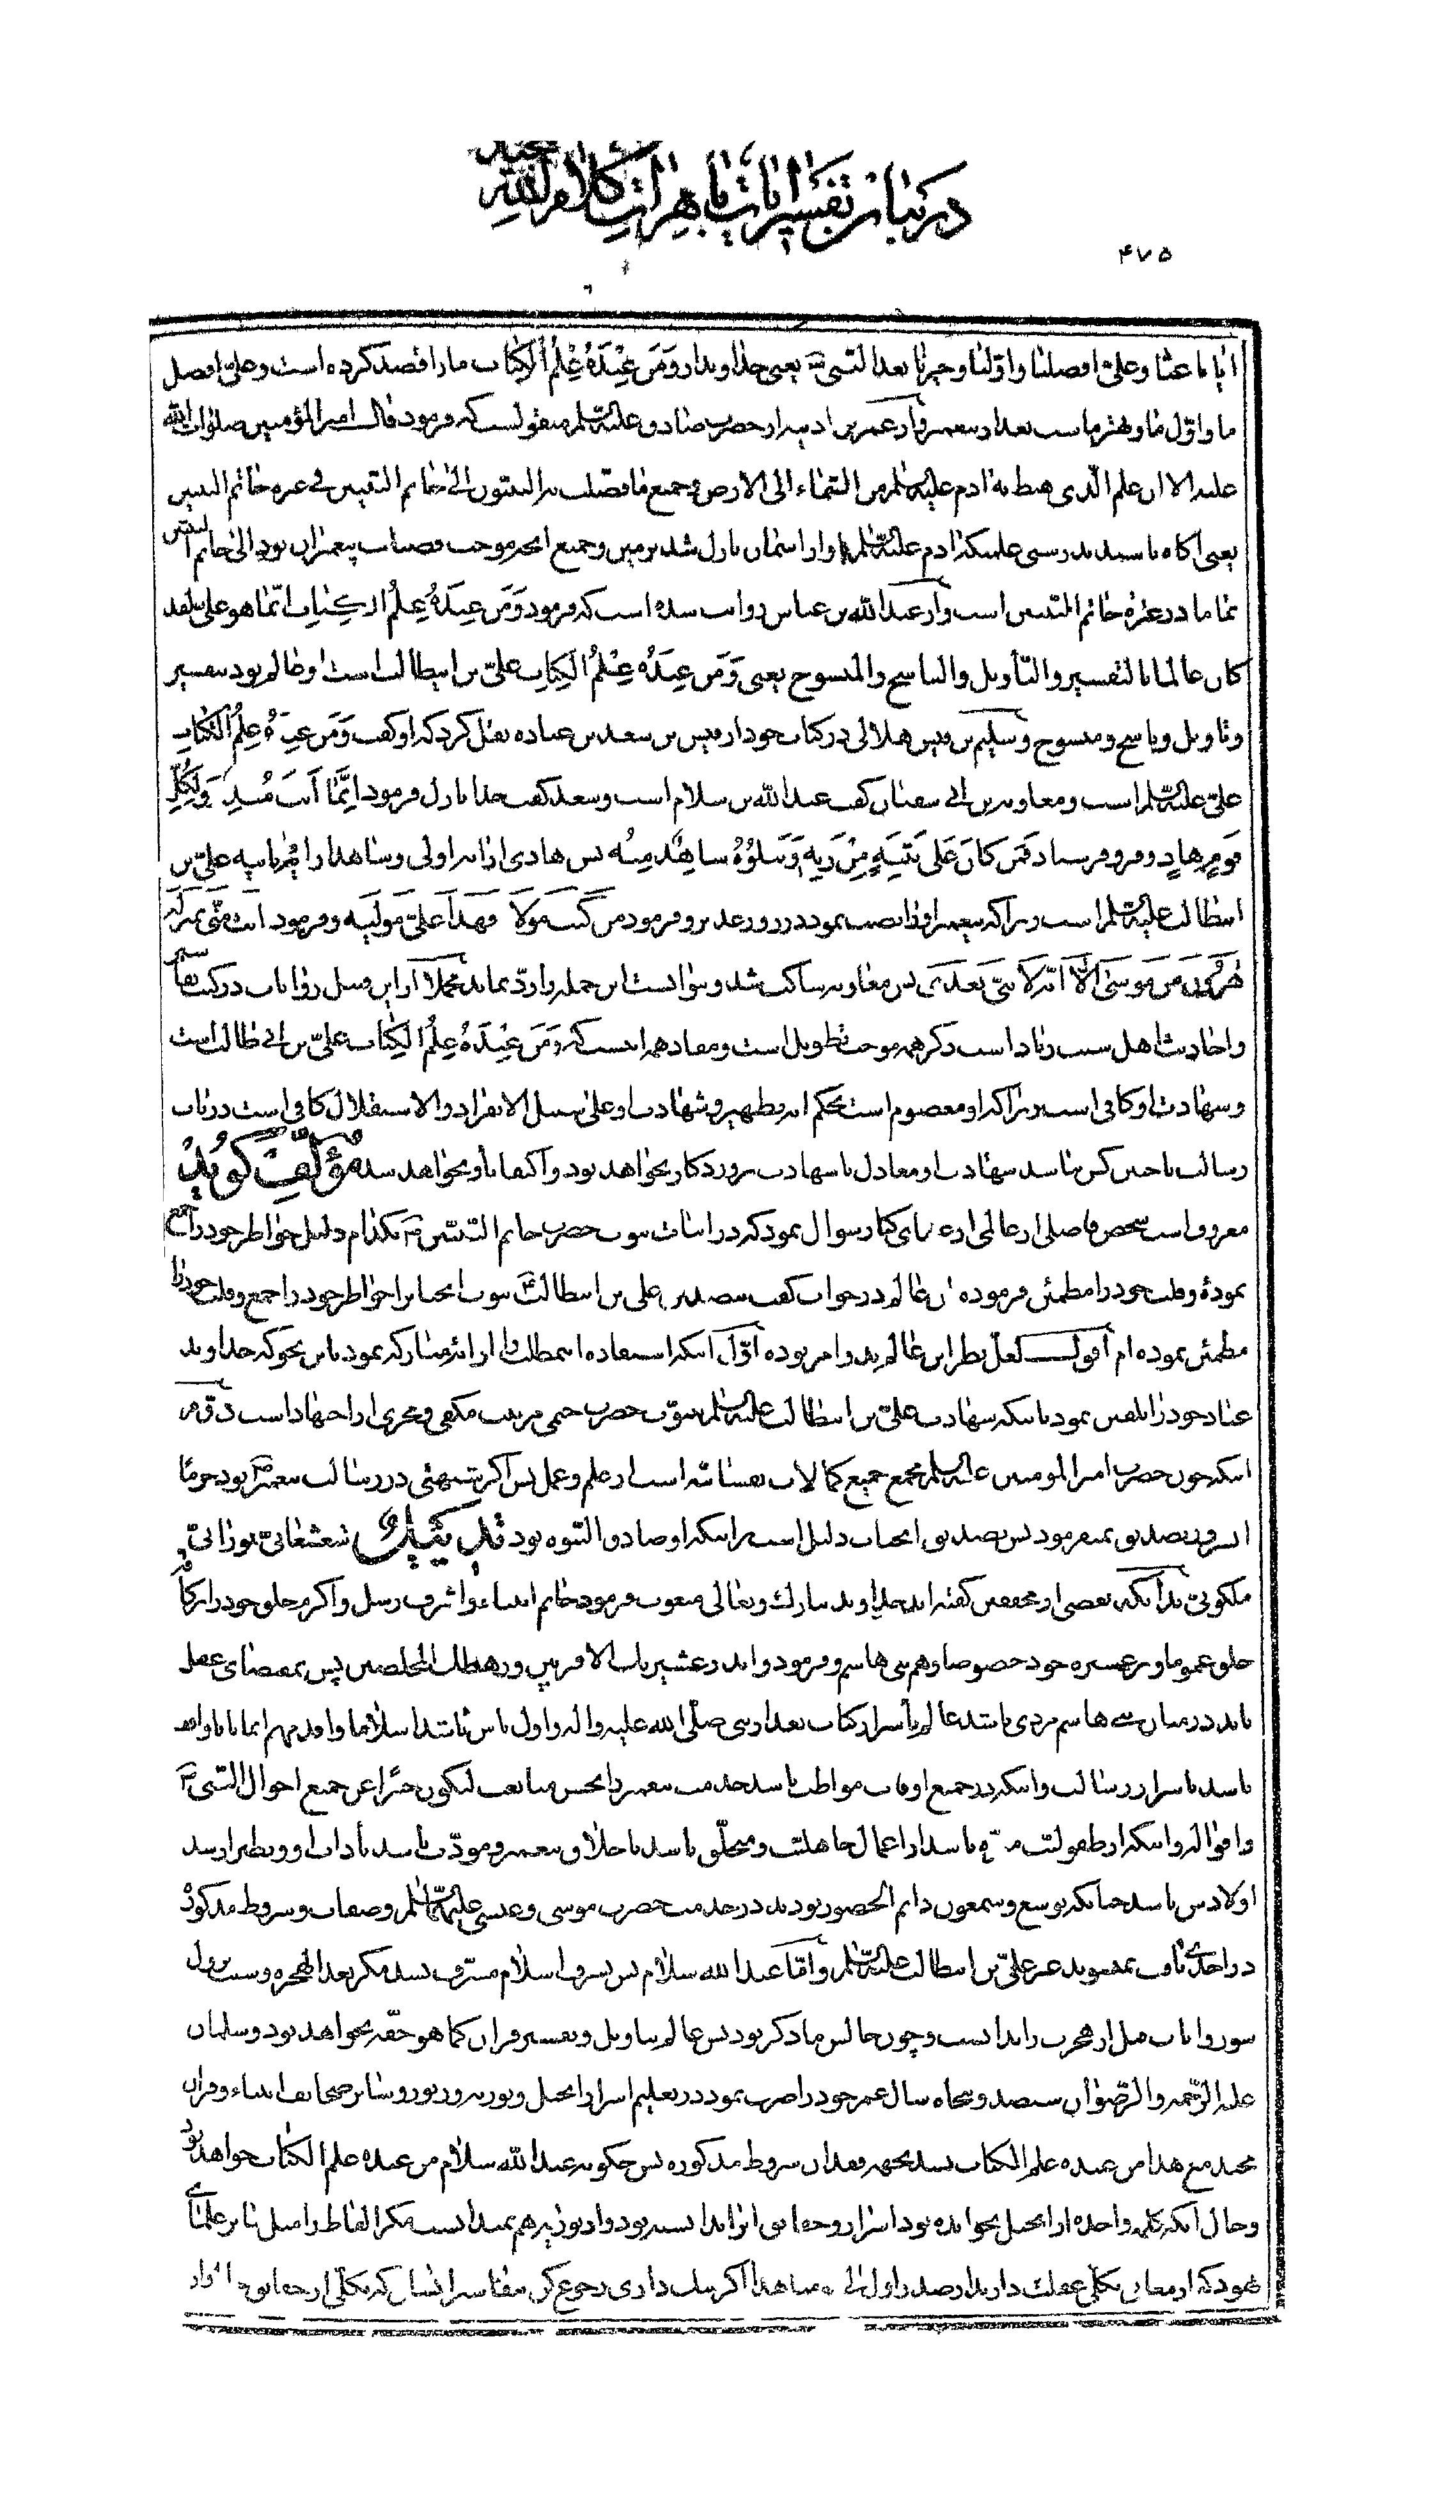 در بیان تفسیر ایات باهرات کلام الله مجید
۴۷۵
ایانا عنی وعلی افضلنا واوّلنا وخیرنا بعد النبی یعنی خداوند از وَمَن عِندَهُ عِلمُ الکِتاب ما را قصد کرده است وعلی افضل
ما واوّل ما وبهتر ماست بعد از پیغمبر واز عمر بن اذینه از حضرت صادق علیه السلم منقولست که فرمود قال امیر المؤمنین صلوات الله
علیه الا ان علم الّذی هبط به ادم علیه السلم من السّماء الی الارض وجمیع ما فضّلت به النبیّون الی خاتم النبیین فی عترة خاتم النبیین
یعنی اکاه باشید بدرستی علمیکه ادم علیه السلم او را از اسمان نازل شد بزمین وجمیع انچه موجب فضیلت پیغمبران بود الی خاتم النبیین
تماما در عترة خاتم النبیین است واز عبد الله بن عباس روایت شده است که فرمود وَمَن عِندَهُ عِلمُ الکِتاب انّما هو علی لقد
کان عالما بالتفسیر والتّأویل والناسخ والمنسوخ یعنی وَمَن عِندَهُ عِلمُ الکِتابِ علیّ بن ابیطالب است او عالم بود بتفسیر
وتاویل وناسخ ومنسوخ وسلیم بن قیس هلالی در کتاب خود از قیس بن سعد بن عباده نقل کرد که او کفت وَمَن عِندَهُ عِلمُ الکِتابِ
علیّ علیه السلم است ومعاویه بن ابی سفیان کفت عبد الله بن سلام است وسعد کفت خدا نازل فرمود اِنَّما اَنتَ مُنذِر وَلِکُلِّ
قَومٍ هادٍ وفرو فرستاد فَمَن کانَ عَلی بَیِّنَةٍ مِن رَبِّه وَیَتلوُهُ شاهِدٌ مِنه پس هادی از ایه اولی وشاهد از ثانیه علیّ بن
ابیطالب علیه السلم است زیرا که پیغمبر او را نصب نمود در روز غدیر وفرمود مَن کُنتُ مَولاهُ فَهذا علیّ مَولیه وفرمود انت منّی بمنزلة
هرُونَ مِن موسَی الّا اَنّه لا نبیّ بَعدی پس معاویه ساکت شد ونتوانست این جمله را ردّ نماید مجملا از این قبیل روایات در کتب تفاسیر
واحادیث اهل بیت زیاد است ذکر همه موجب تطویل است ومفاد همه اینست که وَمَن عِندَهُ عِلمُ الکِتاب علیّ بن ابی طالب است
وشهادت او کافی است زیرا که او معصوم است بحکم ایه تطهیر وشهادت او علی سبیل الانفراد والاستقلال کافی است در باب
رسالت تا چنین کس نباشد شهادت او معادل با شهادت پروردکار نخواهد بود واکتفا باو نخواهد شد مؤلف کوید
معروف است شخص فاضلی از عالمی از علمای کبار سوال نمود که در اثبات نبوت حضرت خاتم النبیّین بکدام دلیل خواطر خود را جمع
نموده وقلب خود را مطمئن فرموده ان عالم در جواب کفت بتصدیق علی بن ابیطالب نبوت انجناب را خواطر خود را جمع وقلب خود را
مطمئن نموده ام اقول لعل نظر این عالم بدو امر بوده اوّل اینکه استفاده اینمطلب را از ایه مبارکه نموده باین نحو که خداوند
عباد خود را تلقین نموده باینکه شهادت علیّ بن ابیطالب علیه السلم نبوّت حضرت ختمی مرتبت مکفی ومجزی از احتهاد است دوّم
اینکه چون حضرت امیر المومنین علیه السلم مجمع جمیع کمالات نفسانیه است از علم وعمل پس اکر شبهه‌ئی در رسالت پیغمبر بود جزما
انسرور تصدیق نمیفرمود پس تصدیق انجناب دلیل است براینکه او صادق النبوه بود
ملکوتی بدانکه بعضی از محققین کفته اند خداوند تبارک وتعالی مبعوث فرمود خاتم انبیاء واشرف رسل واکرم خلق خود را بر کافه
خلق عموما وبر عشیره خود خصوصا وهم بنی هاشم وفرمود وانذر عشیرتک الاقربین ورهطک المخلصین پس بمقتضای عقل
باید در میان بنی هاشم مردی باشد عالم باسرار کتاب بعد از نبی صلّی الله علیه واله واول ناس باشد اسلاما واقدمهم ایمانا وواقف
باشد باسرار رسالت واینکه در جمیع اوقات مواظب باشد خدمت پیغمبر را بحسن متابعت لیکون خبرًا عن جمیع احوال النبی
واقواله واینکه از طفولیت منزه باشد از اعمال جاهلیت ومتخلّق باشد باخلاق پیغمبر ومودّب باشد باداب او ونظیر ارشد
اولادش باشد چنانکه یوشع وشمعون دایم الحضور بودند در خدمت حضرت موسی وعیسی علیهما السلم وصفات وشروط مذکوره
در احدی یافت نمیشود غیر علیّ بن ابیطالب علیه السلم وامّا عبد الله سلام پس بشرف اسلام مشرف نشد مکر بعد الهجره وسبب نزول
سور وایات قبل از هجرت را ندانست وچون حالش ما ذکر بود پس عالم بتاویل وتفسیر قران کما هو حقّه نخواهد بود وسلمان
علیه الرّحمه والرّضوان سیصد وپنجاه سال عمر خود را صرف نمود در تعلیم اسرار انجیل وتوریه وزبور وسایر صحایف انبیاء وقران
مجید مع هذا من عنده علم الکتاب نشد بجهه فقدان شروط مذکوره پس چکونه عبد الله سلام من عنده علم الکتاب خواهد بود
وحال انکه یکمرتبه واحده از انجیل نخوانده بود اسرار وحقایق انرا ندانسته بود واز توریه هم نمیدانست مکر الفاظ را مثل سایر علمای
یهود که از معانی بکلی غفلت دارند از صدر اول الی اکر شک داری رجوع کن بتفاسیر ایشان که بکلّی از حقایق